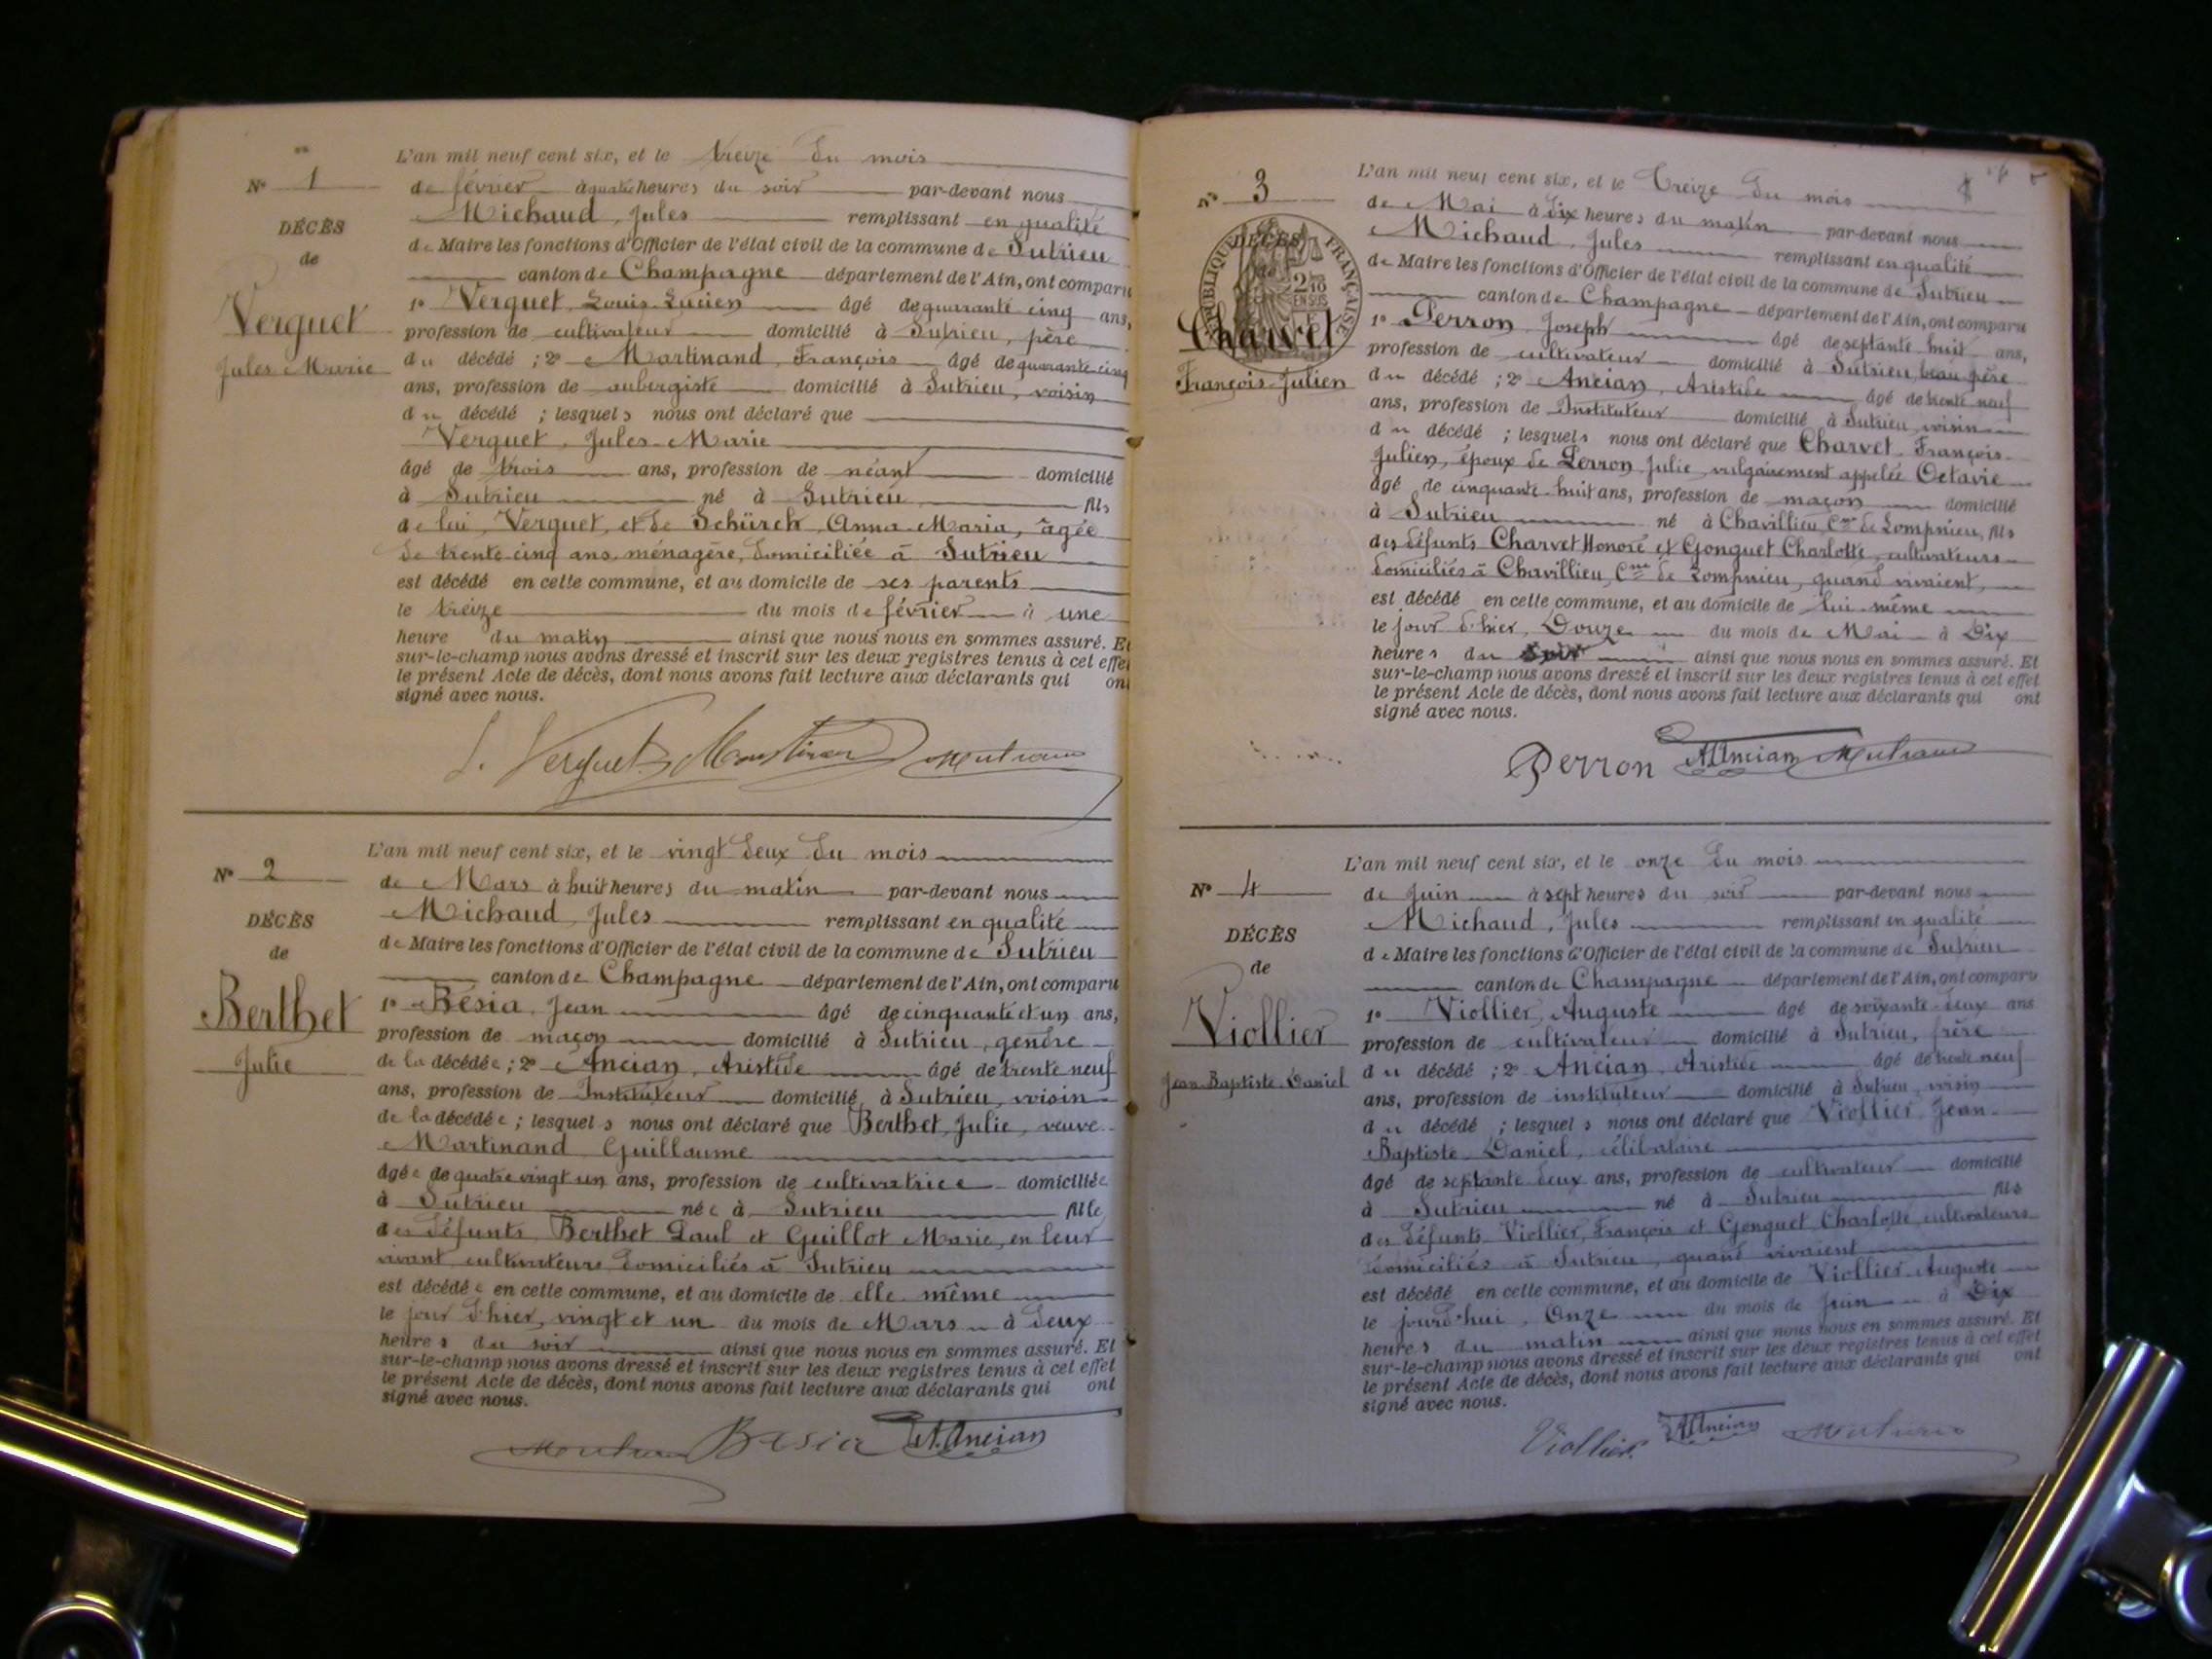 L'an mil neuf cent six, et le treize du mois
N° 1
de février à quatre heures du soir par-devant nous
Michaud, Jules remplissant en qualité
DÉCÈS
de Maire les fonctions d'Officier de l'état civil de la commune de Sutrieu
de
canton de Champagne département de l'Ain, ont comparu
Verguet
Jules Marie
1° Verguet, Louis-Lucien âgé de quarante cinq ans,
profession de cultivateur domicilié à Sutrieu, père
du décédé ; 2° Martinand, François âgé de quarante-cinq
ans, profession de aubergiste domicilié à Sutrieu, voisin
du décédé ; lesquels nous ont déclaré que
Verguet, Jules-Marie
âgé de trois ans, profession de néant domicilié
à Sutrieu né à Sutrieu fils
de lui, Verguet, et de Schürch, Anna-Maria, âgée
de trente-cinq ans, ménagère, domiciliée à Sutrieu
est décédé en cette commune, et au domicile de ses parents
le treize du mois de février à une
heure du matin ainsi que nous nous en sommes assuré. Et
sur-le-champ nous avons dressé et inscrit sur les deux registres tenus à cet effet
le présent Acte de décès, dont nous avons fait lecture aux déclarants qui ont
signé avec nous.
L. Verguet Martinand
L'an mil neuf cent six, et le vingt deux du mois
N° 2
de Mars à huit heures du matin par-devant nous
Michaud, Jules remplissant en qualité
DÉCÈS
de Maire les fonctions d'Officier de l'état civil de la commune de Sutrieu
de
canton de Champagne département de l'Ain, ont comparu
Berthet
Julie
1° Bésia, Jean âgé de cinquante et un ans,
profession de maçon domicilié à Sutrieu, gendre
de la décédée ; 2° Ancian, Aristide âgé de trente neuf
ans, profession de Instituteur domicilié à Sutrieu, voisin
de la décédée ; lesquels nous ont déclaré que Berthet, Julie, veuve
Martinand Guillaume
âgée de quatre vingt un ans, profession de cultivatrice domiciliée
à Sutrieu née à Sutrieu fille
des défunts Berthet Paul et Guillot Marie, en leur
vivant cultivateurs domiciliés à Sutrieu
est décédée en cette commune, et au domicile de elle même
le jour d'hier, vingt et un du mois de Mars à deux
heures du soir ainsi que nous nous en sommes assuré. Et
sur-le-champ nous avons dressé et inscrit sur les deux registres tenus à cet effet
le présent Acte de décès, dont nous avons fait lecture aux déclarants qui ont
signé avec nous.
Besia A. Ancian
L'an mil neuf cent six, et le treize du mois
N° 3
de Mai à dix heures du matin par-devant nous
Michaud, Jules remplissant en qualité
DÉCÈS
RÉPUBLIQUE FRANÇAISE
2/10 EN SUS
de Maire les fonctions d'Officier de l'état civil de la commune de Sutrieu
canton de Champagne département de l'Ain, ont comparu
Charvet
François-Julien
1° Perron, Joseph âgé de septante huit ans,
profession de cultivateur domicilié à Sutrieu, beau père
du décédé ; 2° Ancian, Aristide âgé de trente neuf
ans, profession de Instituteur domicilié à Sutrieu, voisin
du décédé ; lesquels nous ont déclaré que Charvet François-
Julien, époux de Perron Julie, vulgairement appelée Octavie
âgé de cinquante huit ans, profession de maçon domicilié
à Sutrieu né à Chavillieu, Cne de Lompnieu, fils
des défunts Charvet Honoré et Gonguet Charlotte, cultivateurs
domiciliés à Chavillieu, Cne de Lompnieu, quand vivaient,
est décédé en cette commune, et au domicile de lui-même
le jour d'hier, Douze du mois de Mai à Dix
heures du soir ainsi que nous nous en sommes assuré. Et
sur-le-champ nous avons dressé et inscrit sur les deux registres tenus à cet effet
le présent Acte de décès, dont nous avons fait lecture aux déclarants qui ont
signé avec nous.
Perron A. Ancian
L'an mil neuf cent six, et le onze du mois
N° 4
de Juin à sept heures du soir par-devant nous
Michaud, Jules remplissant en qualité
DÉCÈS
de Maire les fonctions d'Officier de l'état civil de la commune de Sutrieu
de
canton de Champagne département de l'Ain, ont comparu
Viollier
Jean-Baptiste-Daniel
1° Viollier, Auguste âgé de soixante-deux ans
profession de cultivateur domicilié à Sutrieu, frère
du décédé ; 2° Ancian, Aristide âgé de trente neuf
ans, profession de instituteur domicilié à Sutrieu, voisin
du décédé ; lesquels nous ont déclaré que Viollier Jean-
Baptiste-Daniel, célibataire
âgé de septante deux ans, profession de cultivateur domicilié
à Sutrieu né à Sutrieu fils
des défunts Viollier, François et Gonguet, Charlotte, cultivateurs
domiciliés à Sutrieu, quand vivaient
est décédé en cette commune, et au domicile de Viollier Auguste
le jourd'hui, Onze du mois de Juin à Dix
heures du matin ainsi que nous nous en sommes assuré. Et
sur-le-champ nous avons dressé et inscrit sur les deux registres tenus à cet effet
le présent Acte de décès, dont nous avons fait lecture aux déclarants qui ont
signé avec nous.
Viollier A. Ancian